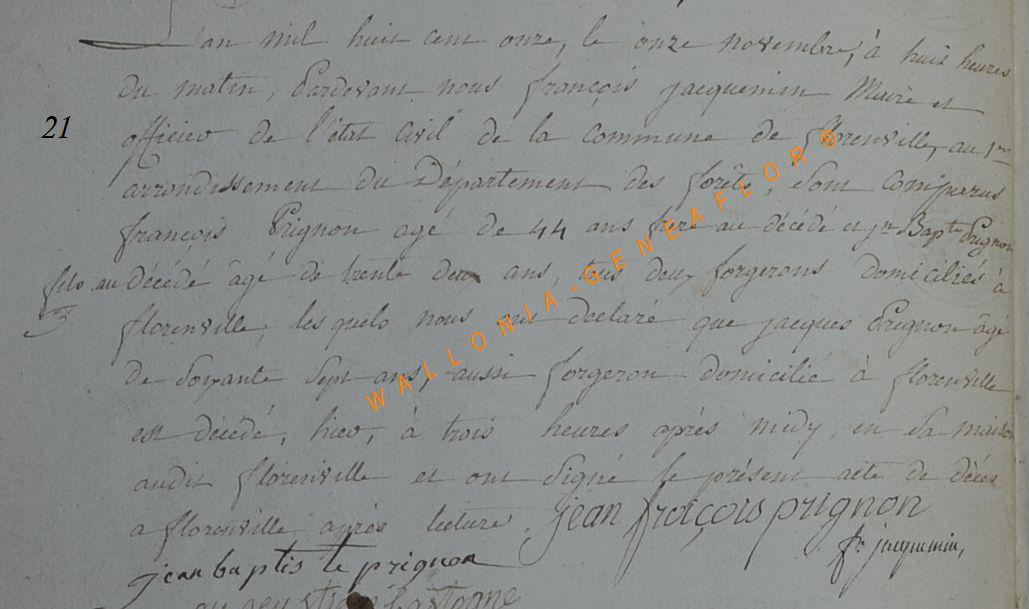 L'an mil huit cent onze, le onze novembre, à huit heures
du matin, Pardevant nous françois jacquemin Maire et
21
officier de l'état civil de la commune de florenville, au 1er
arrondissement du Département des forêts, Sont comparus
françois Prignon agé de 44 ans frere au décédé et jn Bapte Prignon
fils au décédé âgé de trente deux ans, tous deux forgerons domiciliés à
florenville, lesquels nous ont declaré que jacques Prignon âgé
de Soixante Sept ans, aussi forgeron domicilié à florenville
est décédé, hier, à trois heures après midy en Sa maison
audit florenville et ont Signé le présent acte de décès
a florenville après lecture. jean françois prignon
fs jacquemin,
jean baptiste prignon
WALLONIA-GENEAFLOR ©